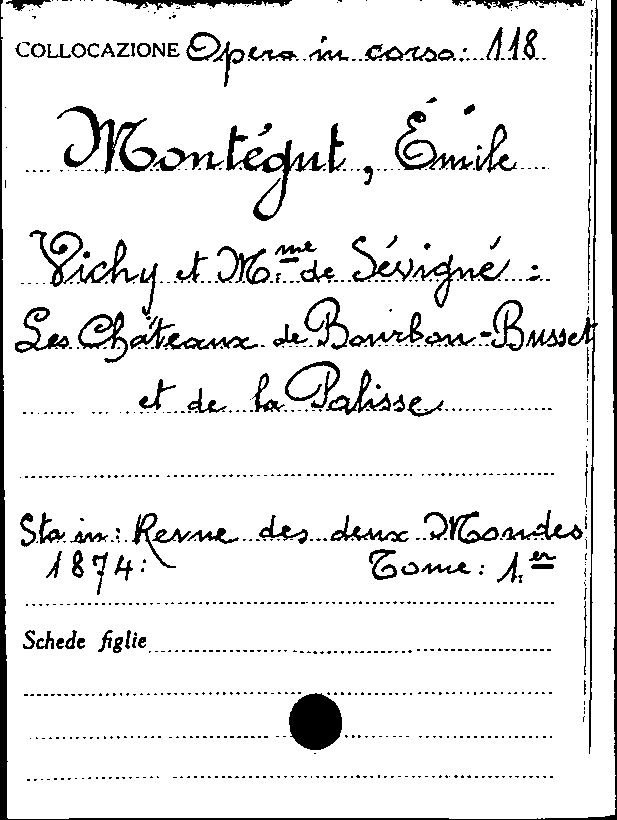 COLLOCAZIONE Opera in corso: 118
Montégut, Émile
Vichy et M.me de Sévigné :
Les Châteaux de Bourbon-Busset
et de la Palisse
Sta in: Revue des deux Mondes
1874: Tome: 1.er
Schede figlie